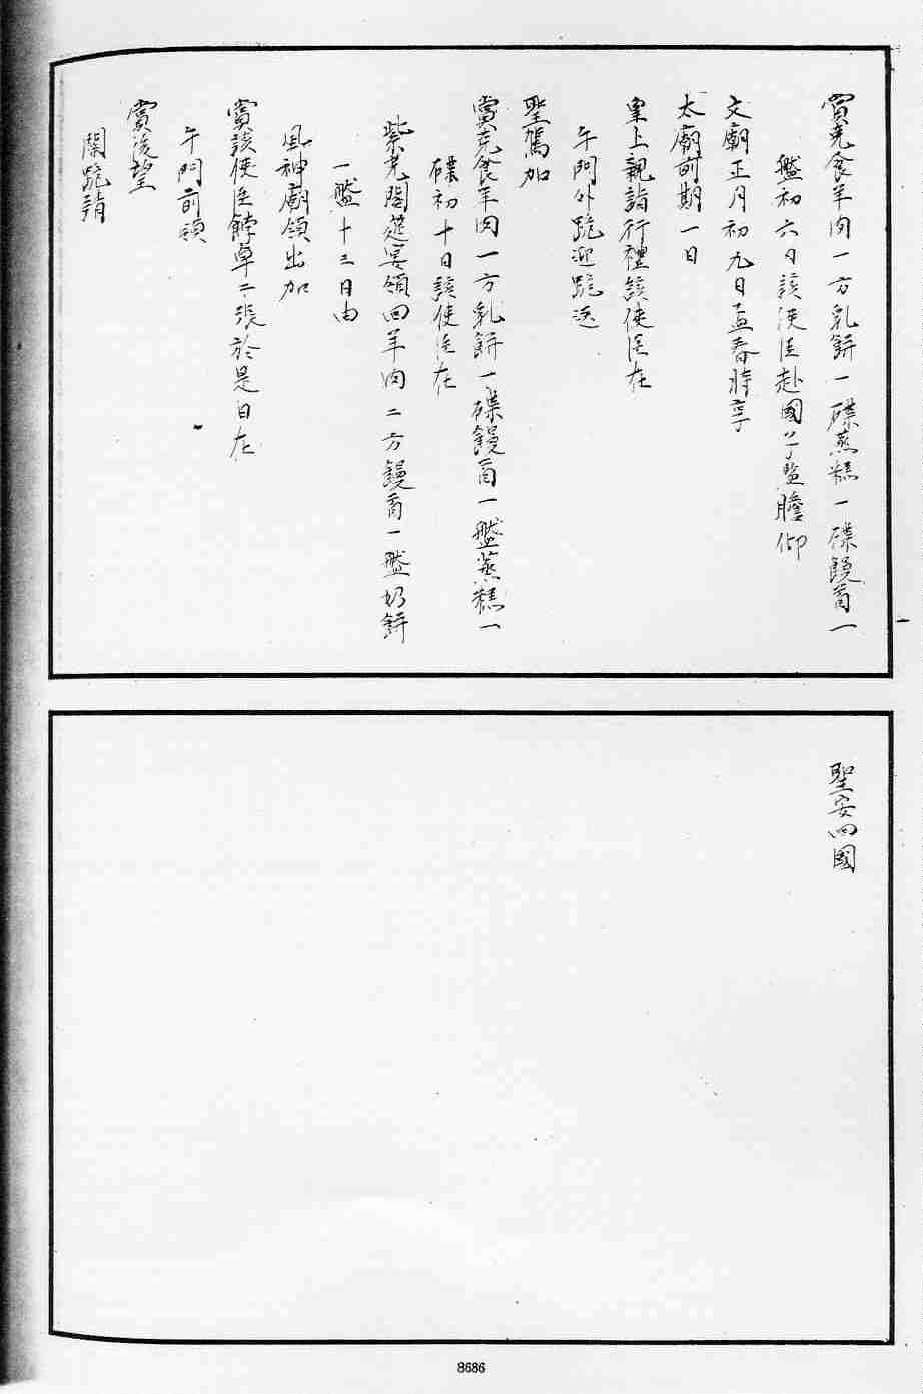 賞克食羊肉一方乳餅一碟蒸糕一碟饅首一
盤初六日該使臣赴國子監瞻仰
文廟正月初九日孟春時享
太廟前期一日
皇上親詣行禮該使臣在
午門外跪迎跪送
聖駕加
賞克食羊肉一方乳餅一碟饅首一盤蒸糕一
碟初十日該使臣在
紫光閣筵宴領回羊肉二方饅首一盤奶餅
一盤十三日由
風神廟領出加
賞該使臣餑卓二張於是日在
午門前領
賞後望
闕跪請
聖安回國
8686